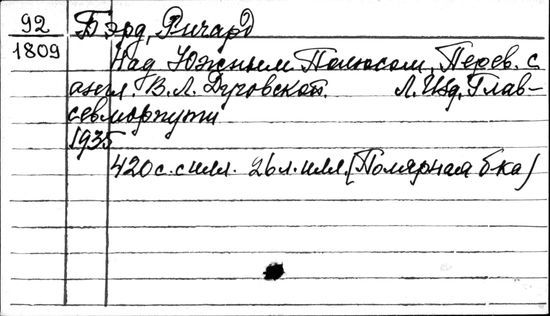 92
1809
Бэрд, Ричард
Над Южным Полюсом, Перев. с
англ. В.Л. Дуговской. Л. Изд. Глав-
севморпути
1935
420 с. с илл. 26 л. илл. (Полярная б-ка)